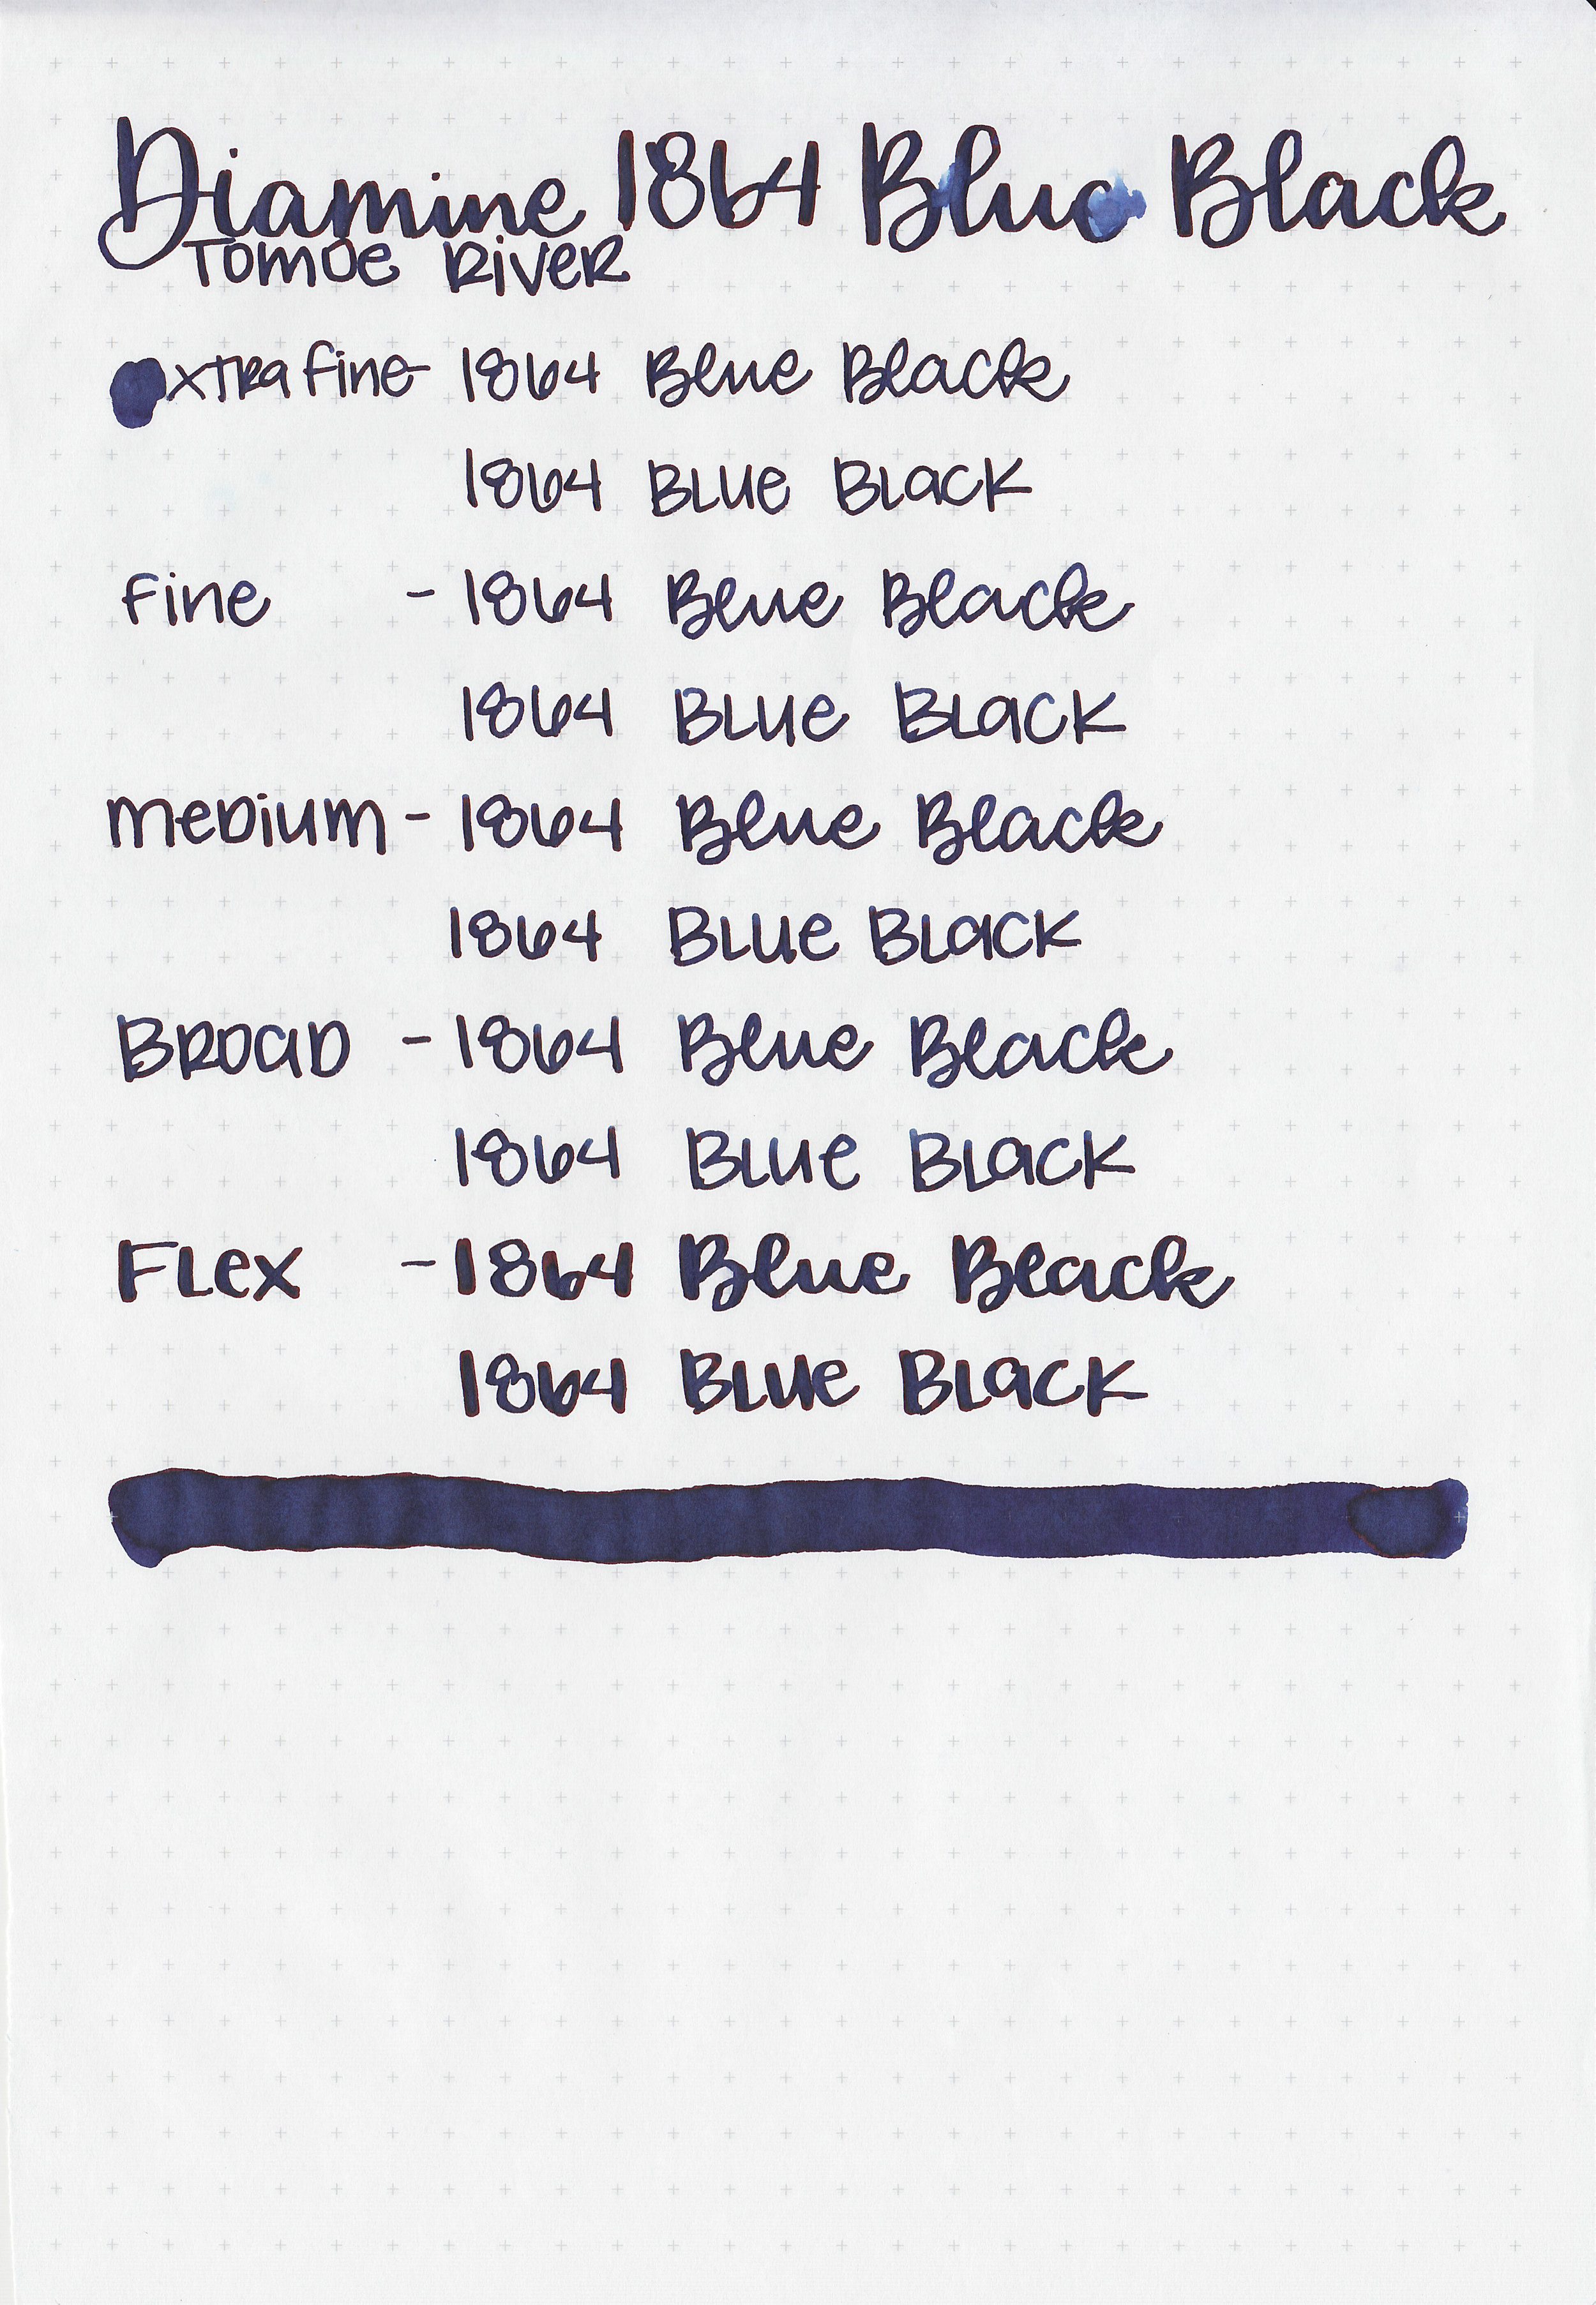 Diamine 1864 Blue Black
Tomoe River
Extra fine - 1864 Blue Black
1864 Blue Black
Fine - 1864 Blue Black
1864 Blue Black
Medium - 1864 Blue Black
1864 Blue Black
Broad - 1864 Blue Black
1864 Blue Black
Flex - 1864 Blue Black
1864 Blue Black